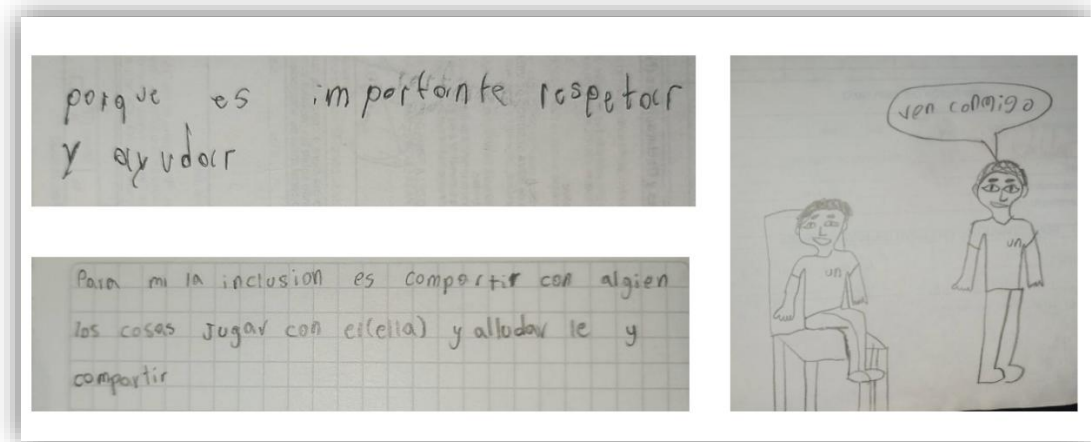 porque es importante respetar
y ayudar
Para mi la inclusion es compartir con algien
las cosas Jugar con el(ella) y alludar le y
compartir
ven conmigo
un
un